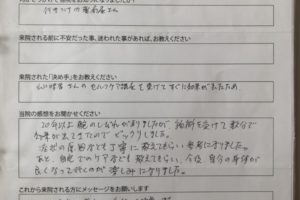 来院される前に不安だった事、迷われた事があれば、お教えください
来院された「決め手」をお教えください
さんのセルフケア講座を受けてすぐに効果が出たため
当院の感想をお聞かせください
20年以上 腕のしびれがありましたが 施術を受けて数分で
効果が出てきたので ビックリしました。
も丁寧に教えてもらい 参考になりました。
あと、自宅でのケアなども教えてもらい、今後、自分の身体が
良くなって行くのが 楽しみになりました。
これから来院される方にメッセージをお願いします